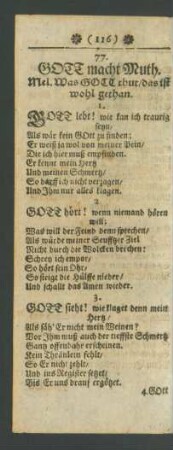 (116)
77.
GOTT macht Muth.
Mel. Was GOTT thut/das ist
wohl gethan.
1.
GOTT lebt! wie kan ich traurig
seyn/
Als wär kein GOtt zu finden:
Er weiß ja wol von meiner Pein/
Die ich hier muß empfinden.
Er kennt mein Hertz
Und meinen Schmertz/
So darff ich nicht verzagen/
Und Ihm nur alles klagen.
2.
GOTT hört! wenn niemand hören
will:
Was will der Feind denn sprechen/
Als würde meiner Seuffzer Ziel
Nicht durch die Wolcken brechen:
Schrey ich empor/
So hört sein Ohr/
So steigt die Hülffe nieder/
Und schallt das Amen wieder.
3.
GOTT sieht! wie klaget denn mein
Hertz/
Als säh' Er nicht mein Weinen?
Vor Ihm muß auch der tieffste Schmertz
Gantz offenbahr erscheinen.
Kein Thränlein fehlt/
So Er nicht zehlt/
Und ins Register setzet/
Biß Er uns drauf ergötzet.
4. GOtt